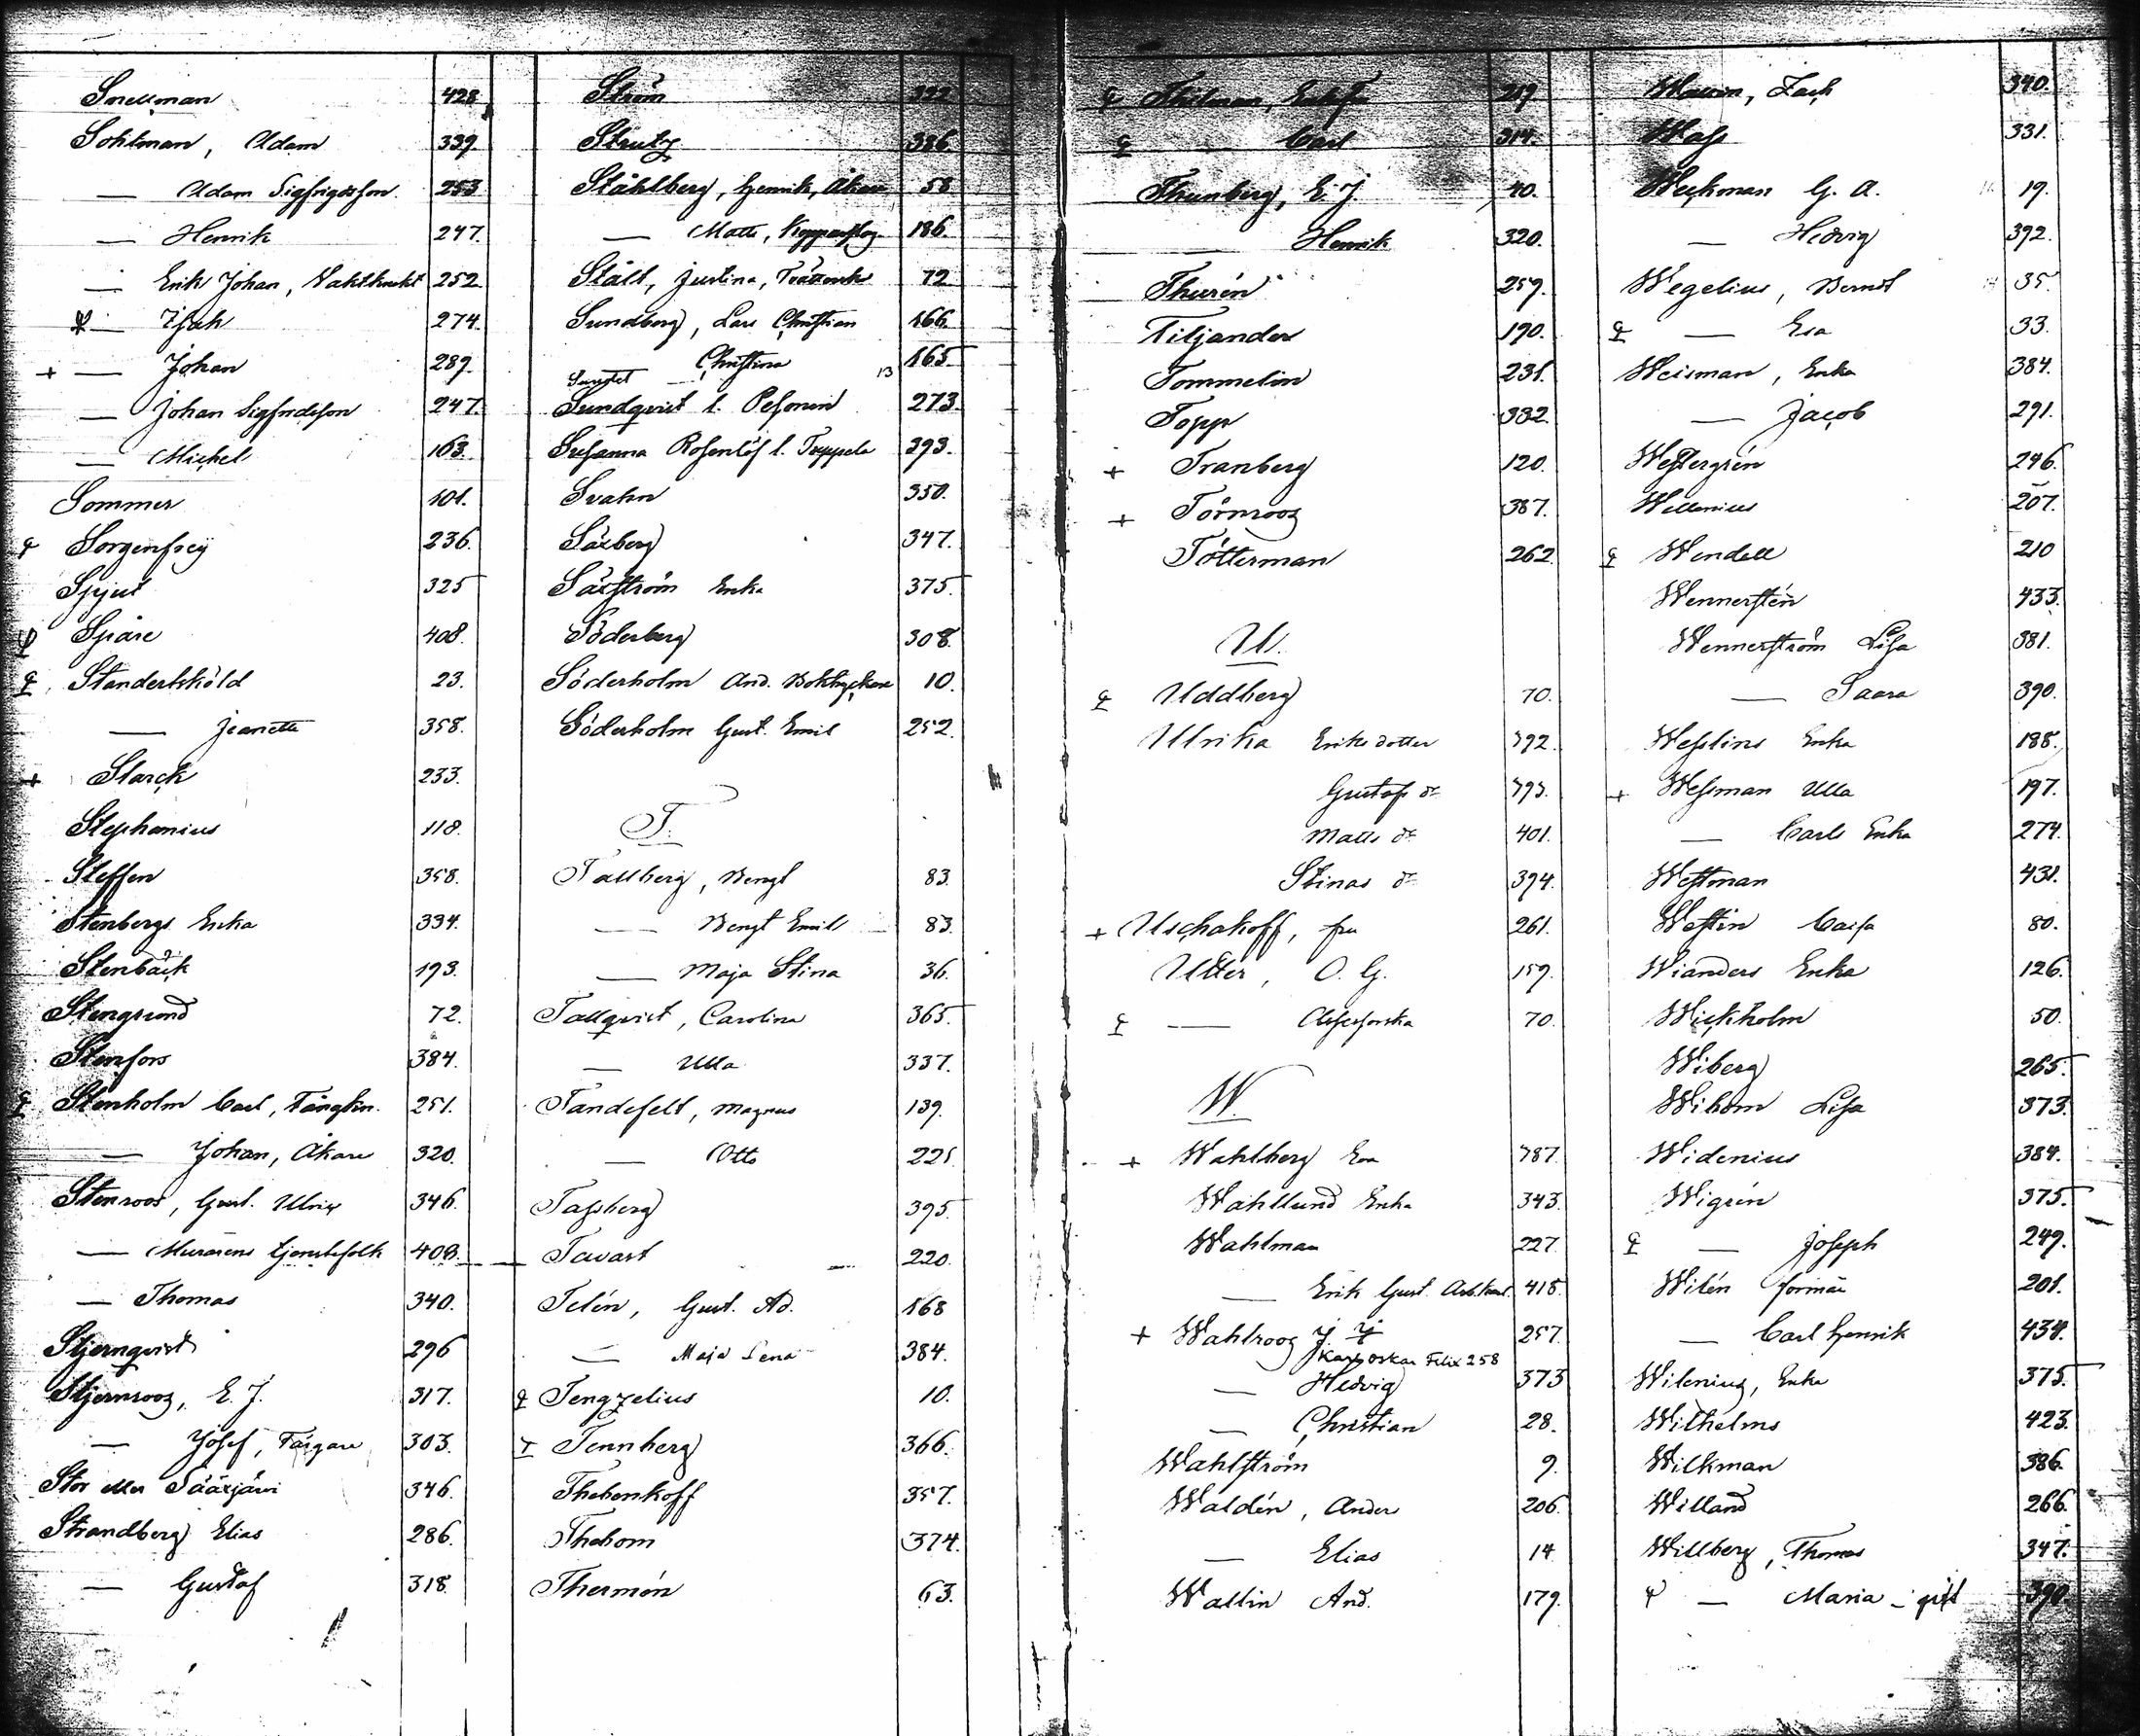 Snellman 428
Sohlman, Adam 339
— Adam Sigfrigdsson 253
— Henrik 247.
— Erik Johan, Vaktknekt 252
— Isak 274.
+ — Johan 289.
— Johan Sigfridsson 247.
— Mickel 163.
Sommer 101.
Sorgenfrey 236.
325
Spåre 408.
Standertsköld 23.
— Jeanette 358.
+ Starck 233.
Stephanius 118.
Steffen 358.
Stenbergs Enka 334.
Stenbäck 193.
Stengrund 72.
Stenfors 384.
Stenholm Carl, 251.
— Johan, Åkare 320.
Stenroos, Gust. Ulrik 346.
— Murarens tjenstefolk 408.
— Thomas 340.
Stjernqvist 296
Stjernroos, E. J. 317.
— Josef, Färgare 303.
Stor eller Säärjärvi 346.
Strandberg Elias 286.
— Gustaf 318.
Ström 322
Strutz 386.
Ståhlberg, Henrik, Åkare 58
— Matts, 186.
Stålt, Justina, 72
Sundberg, Lars Christian 166.
— Christina 165
Sundqvist l. Pesonen 273.
Susanna Rosenlöf l. Toppela 393.
Svahn 350.
Säxberg 347.
Säxström Enka 375.
Söderberg 308.
Söderholm And. Boktryckare 10.
Söderholm Gust. Emil 252.
T.
Tallberg, Bengt 83.
— Bengt Emil 83.
— Maja Stina 36.
Tallqvist, Carolina 365.
— Ulla 337.
Tandefelt, Magnus 139.
— Otto 221.
Tassberg 395.
Tavast 220.
Telén, Gust. Ad. 168
— Maja Lena 384.
Tengzelius 10.
Tennberg 366.
Thebenkoff 357.
Thebom 374.
Thermén 63.
Thilman, 219
— Carl 314.
Thunberg, E. J. 40.
— Henrik 320.
Thurén 259.
Tiljander 190.
Tommelin 231.
Topp 332.
+ Tranberg 120.
+ Törnroos 387.
Tötterman 262
U.
Uddberg 70.
Ulrika Eriksdotter 392.
Gustafs dr 393.
Matts dr 401.
Stinas dr 394.
+ Uschakoff, fru 261.
Utter, O. G. 159.
— 70.
W.
+ Wahlberg Eva 387.
Wahllund Enka 343.
Wahlman 227.
— Erik Gust. Arb.karl. 418.
+ Wahlroos J. J. 257.
Karl Oskar Felix 258
— Hedvig 373
— Christian 28.
Wahlström 9.
Waldén, Anders 206.
— Elias 14
Wallin And. 179.
Wallin, Zach 340.
Wass 331.
Weckman G. A. 19.
— Hedvig 392.
Wegelius, Berndt 35.
— Eva 33.
Weisman, Enka 384.
— Jacob 291.
Westergren 246.
Wellenius 207.
Wendell 210
Wennerstén 433.
Wennerström Lisa 381.
— Saara 390.
Wesslins Enka 188.
+ Wessman Ulla 197.
— Carls Enka 274.
Westman 431.
Westin Caisa 80.
Wianders Enka 126.
Wickholm 50.
Wiberg 265.
Wibom Lisa 373.
Widenius 384.
Wigrén 375.
— Joseph 249.
Wilén 201.
— Carl Henrik 434.
Wilenius, Enka 375.
Wilhelms 423.
Wilkman 386.
Willand 266.
Willberg, Thomas 347.
— Maria - gift 390.